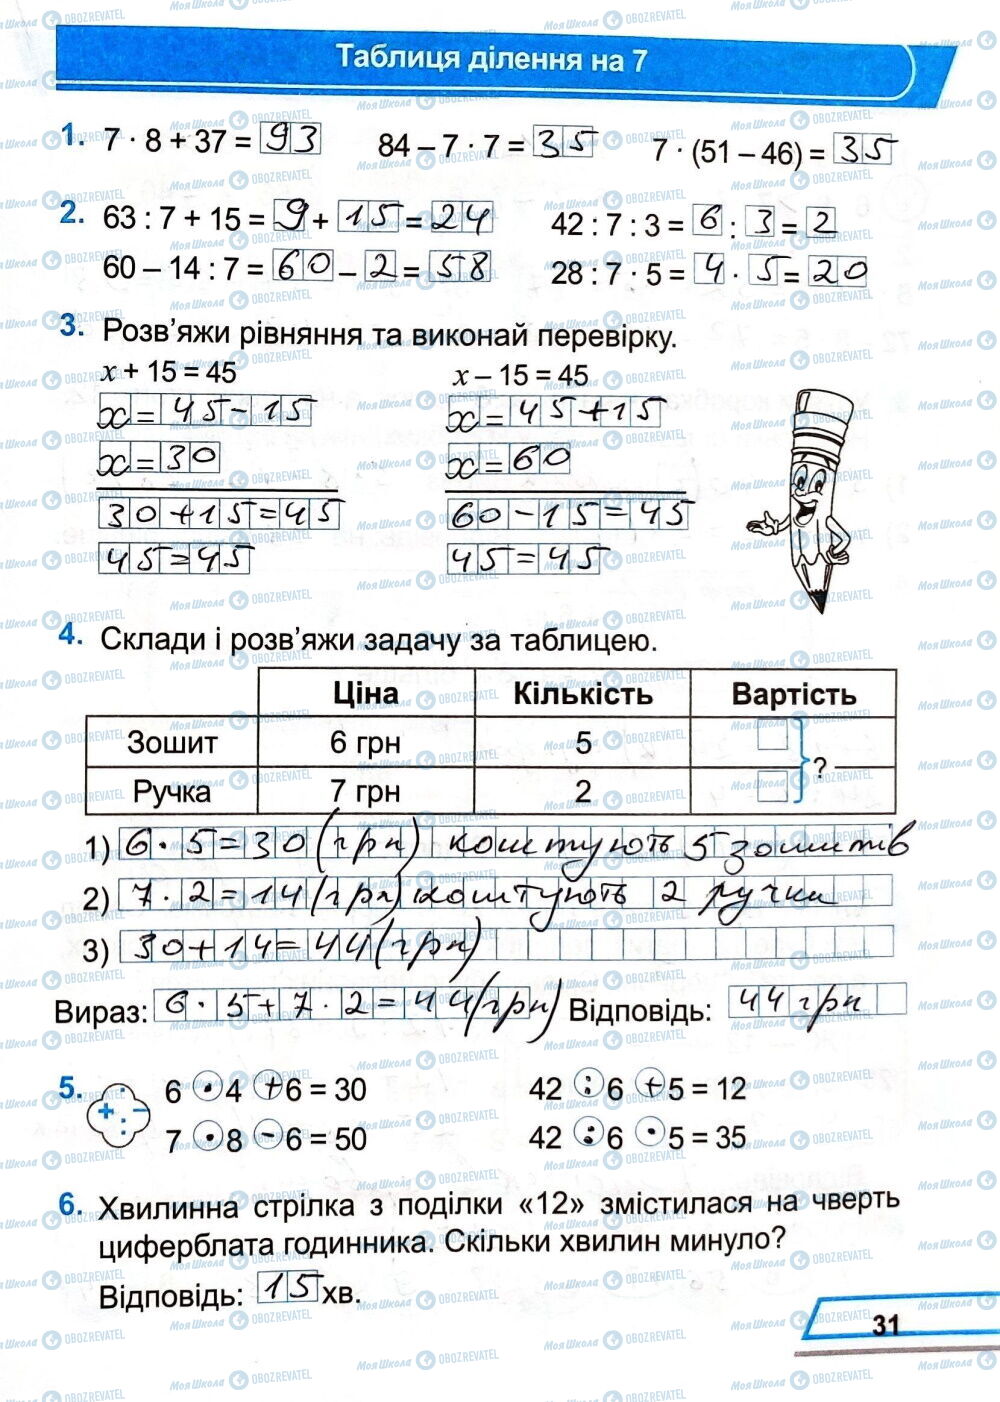 Таблиця ділення на 7
1. 7 · 8 + 37 = 93 84 – 7 · 7 = 35 7 · (51 – 46) = 35
2. 63 : 7 + 15 = 9 + 15 = 24 42 : 7 : 3 = 6 : 3 = 2
60 – 14 : 7 = 60 – 2 = 58 28 : 7 · 5 = 4 · 5 = 20
3. Розв’яжи рівняння та виконай перевірку.
x + 15 = 45 x – 15 = 45
x = 45 - 15 x = 45 + 15
x = 30 x = 60
30 + 15 = 45 60 - 15 = 45
45 = 45 45 = 45
4. Склади і розв’яжи задачу за таблицею.
Ціна Кількість Вартість
Зошит 6 грн 5
?
Ручка 7 грн 2
1) 6 · 5 = 30 (грн) коштують 5 зошитів
2) 7 · 2 = 14 (грн) коштують 2 ручки
3) 30 + 14 = 44 (грн)
Вираз: 6 · 5 + 7 · 2 = 44 (грн) Відповідь: 44 грн
5. 6 · 4 + 6 = 30 42 : 6 + 5 = 12
+ · – :
7 · 8 – 6 = 50 42 : 6 · 5 = 35
6. Хвилинна стрілка з поділки «12» змістилася на чверть
циферблата годинника. Скільки хвилин минуло?
Відповідь: 15 хв.
31
МояШкола OBOZREVATEL